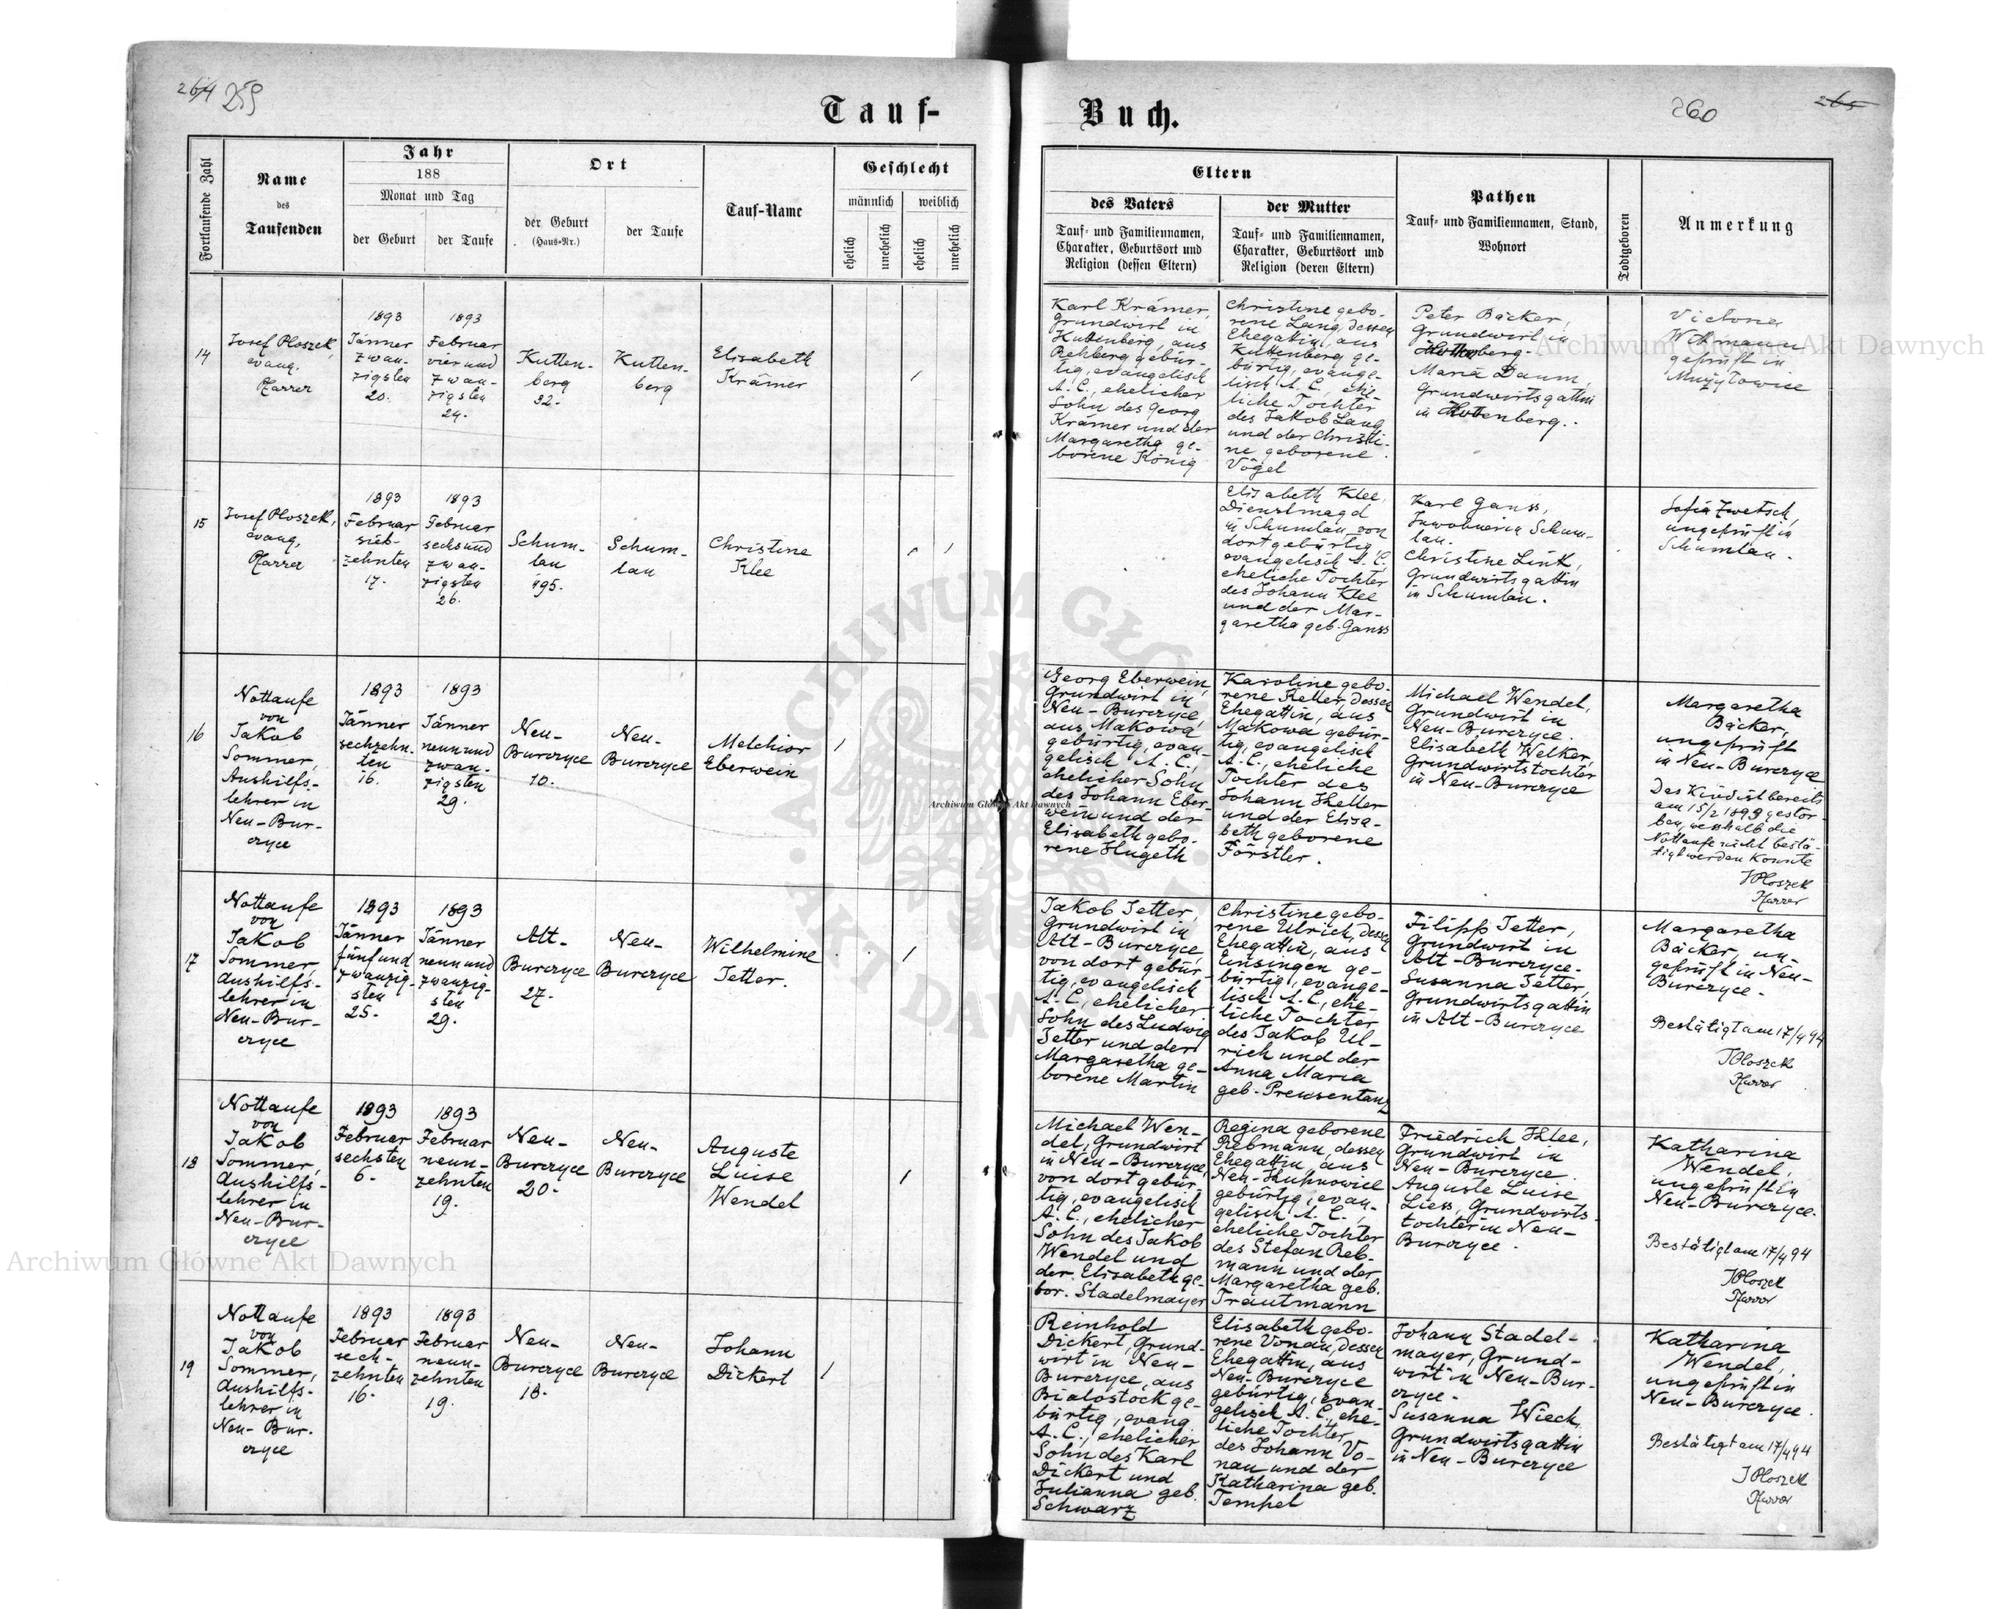 264 259
Tauf-
Buch.
260
265
Fortlaufende Zahl
Name
des
Taufenden
Jahr
188
Monat und Tag
der Geburt
der Taufe
Ort
der Geburt
(Haus-Nr.)
der Taufe
Tauf-Name
Geschlecht
männlich
weiblich
ehelich
unehelich
ehelich
unehelich
Eltern
des Vaters
Tauf- und Familiennamen,
Charakter, Geburtsort und
Religion (dessen Eltern)
der Mutter
Tauf- und Familiennamen,
Charakter, Geburtsort und
Religion (deren Eltern)
Pathen
Tauf- und Familiennamen, Stand,
Wohnort
Todtgeboren
Anmerkung
14
Josef Ploszek,
evang.
Pfarrer
1893
Jänner
zwan-
zigsten
20.
1893
Februar
vier und
zwan-
zigsten
24.
Kutten-
berg
32.
Kutten-
berg
Elisabeth
Krämer
Karl Krämer,
Grundwirt in
Kuttenberg, aus
Rehberg gebür-
tig, evangelisch
A. C., ehelicher
Sohn des Georg
Krämer und der
Margaretha ge-
borene König
Christine gebo-
rene Lang, dessen
Ehegattin, aus
Kuttenberg ge-
bürtig, evange-
lisch A. C. ehe-
liche Tochter
des Jakob Lang
und der Christi-
ne geborene
Vögel
Peter Bäcker,
Grundwirt in
Maria Daum,
Grundwirtsgattin
in
Wekmann
geprüft in
Mużyłowice
15
Josef Ploszek,
evang.
Pfarrer
1893
Februar
sieb-
zehnten
17.
1893
Februar
sechsund
zwan-
zigsten
26.
Schum-
lau
195.
Schum-
lau
Christine
Klee
Elisabeth Klee,
Dienstmagd
in Schumlau, von
dort gebürtig
evangelisch A. C.,
eheliche Tochter
des Johann Klee
und der Mar-
garetha geb. Ganss
Karl Ganss,
Inwohner in Schum-
lau.
Christine Link,
Grundwirtsgattin
in Schumlau.
Sofia Zwetsch,
ungeprüft in
Schumlau.
16
Nottaufe
von
Jakob
Sommer,
Aushilfs-
lehrer in
Neu-Bur-
czyce
1893
Jänner
sechzehn-
ten
16.
1893
Jänner
neun und
zwan-
zigsten
29.
Neu-
Burczyce
10.
Neu-
Burczyce
Melchior
Eberwein
Georg Eberwein,
Grundwirt in
Neu-Burczyce,
aus Makowa
gebürtig, evan-
gelisch A. C.,
ehelicher Sohn
des Johann Eber-
wein und der
Elisabeth gebo-
rene Hugeth
Karoline gebo-
rene Keller, dessen
Ehegattin, aus
Makowa gebür-
tig, evangelisch
A. C., eheliche
Tochter des
Johann Keller
und der Elisa-
beth geborene
Förstler.
Michael Wendel,
Grundwirt in
Neu-Burczyce.
Elisabeth Welker,
Grundwirtstochter
in Neu-Burczyce
Margaretha
Bäcker,
ungeprüft
in Neu-Burczyce
Das Kind ist bereits
am 15/2 1893 gestor-
ben, weshalb die
Nottaufe nicht bestä-
tigt werden konnte
JPloszek
Pfarrer
17
Nottaufe
von
Jakob
Sommer,
Aushilfs-
lehrer in
Neu-Bur-
czyce
1893
Jänner
fünf und
zwanzig-
sten
25.
1893
Jänner
neun und
zwanzig-
sten
29.
Alt-
Burczyce
27.
Neu-
Burczyce
Wilhelmine
Jetter.
Jakob Jetter,
Grundwirt in
Alt-Burczyce,
von dort gebür-
tig, evangelisch
A. C., ehelicher
Sohn des Ludwig
Jetter und der
Margaretha ge-
borene Martin
Christine gebo-
rene Ulrich, dessen
Ehegattin, aus
Einsingen ge-
bürtig, evange-
lisch A. C., ehe-
liche Tochter
des Jakob Ul-
rich und der
Anna Maria
geb. Preusentanz
Filipp Jetter,
Grundwirt in
Alt-Burczyce.
Susanna Jetter,
Grundwirtsgattin
in Alt-Burczyce
Margaretha
Bäcker, un-
geprüft in Neu-
Burczyce.
Bestätigt am 17/4 94
JPloszek
Pfarrer
18
Nottaufe
von
Jakob
Sommer,
Aushilfs-
lehrer in
Neu-Bur-
czyce
1893
Februar
sechsten
6.
1893
Februar
neun-
zehnten
19.
Neu-
Burczyce
20.
Neu-
Burczyce
Auguste
Luise
Wendel
Michael Wen-
del, Grundwirt
in Neu-Burczyce,
von dort gebür-
tig, evangelisch
A. C., ehelicher
Sohn des Jakob
Wendel und
der Elisabeth ge-
bor. Stadelmayer
Regina geborene
Rebmann, dessen
Ehegattin, aus
Neu-Kupnowice
gebürtig, evan-
gelisch A. C.,
eheliche Tochter
des Stefan Reb-
mann und der
Margaretha geb.
Trautmann
Friedrich Klee,
Grundwirt in
Neu-Burczyce
Auguste Luise
Liess, Grundwirts-
tochter in Neu-
Burczyce.
Katharina
Wendel,
ungeprüft in
Neu-Burczyce.
Bestätigt am 17/4 94
JPloszek
Pfarrer
19
Nottaufe
von
Jakob
Sommer,
Aushilfs-
lehrer in
Neu-Bur-
czyce
1893
Februar
sech-
zehnten
16.
1893
Februar
neun-
zehnten
19.
Neu-
Burczyce
18.
Neu-
Burczyce
Johann
Dickert
Reinhold
Dickert, Grund-
wirt in Neu-
Burczyce, aus
Bialostock ge-
bürtig, evang
A. C., ehelicher
Sohn des Karl
Dickert und
Julianna geb.
Schwarz
Elisabeth gebo-
rene Vonau, dessen
Ehegattin, aus
Neu-Burczyce
gebürtig, evan-
gelisch A. C., ehe-
liche Tochter
des Johann Vo-
nau und der
Katharina geb.
Tempel
Johann Stadel-
mayer, Grund-
wirt in Neu-Bur-
czyce.
Susanna Wieck,
Grundwirtsgattin
in Neu-Burczyce
Katharina
Wendel,
ungeprüft in
Neu-Burczyce.
Bestätigt am 17/4 94
JPloszek
Pfarrer
Archiwum Główne Akt Dawnych
Archiwum Główne Akt Dawnych
Archiwum Główne Akt Dawnych
ARCHIWUM GŁÓWNE AKT DAWNYCH